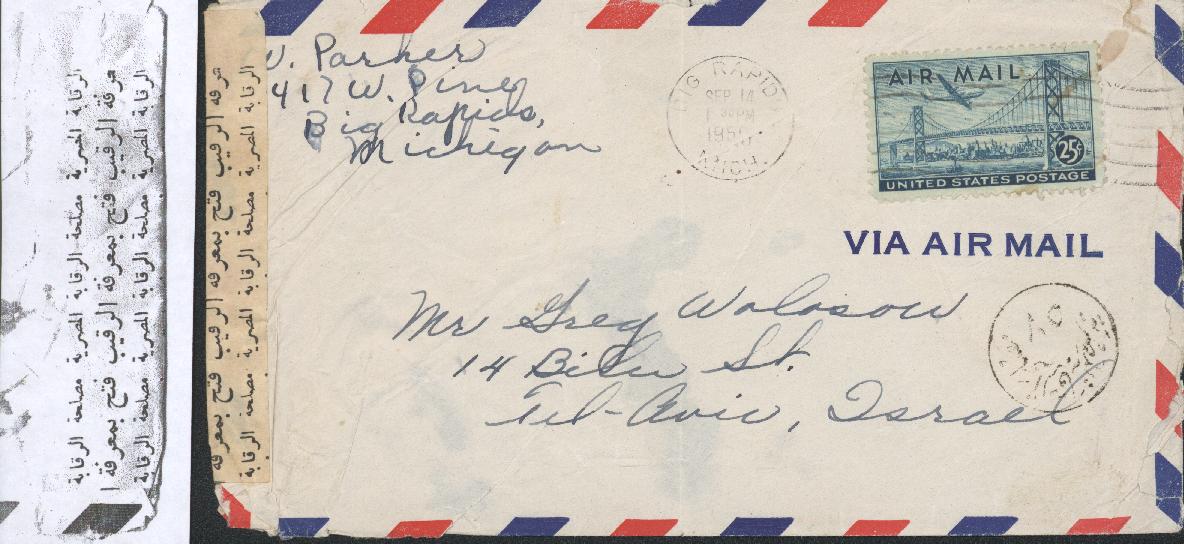 الرقابة المصرية مصلحة الرقابة المصرية مصلحة الرقابة
مرفة الرقيب فتح بمعرفة الرقيب فتح بمعرفة
الرقابة المصرية مصلحة الرقابة المصرية مصلحة الرقابة
مرفة الرقيب فتح بمعرفة الرقيب فتح بمعرفة
الرقابة المصرية مصلحة الرقابة المصرية مصلحة الرقابة
Parker
417 W. Pine
Big Rapids,
Michigan
BIG RAPIDS
SEP 14
30 PM
MICH.
AIR MAIL
25¢
UNITED STATES POSTAGE
VIA AIR MAIL
Mr Greg Wolosow
14 Bilu St.
Tel-Aviv, Israel